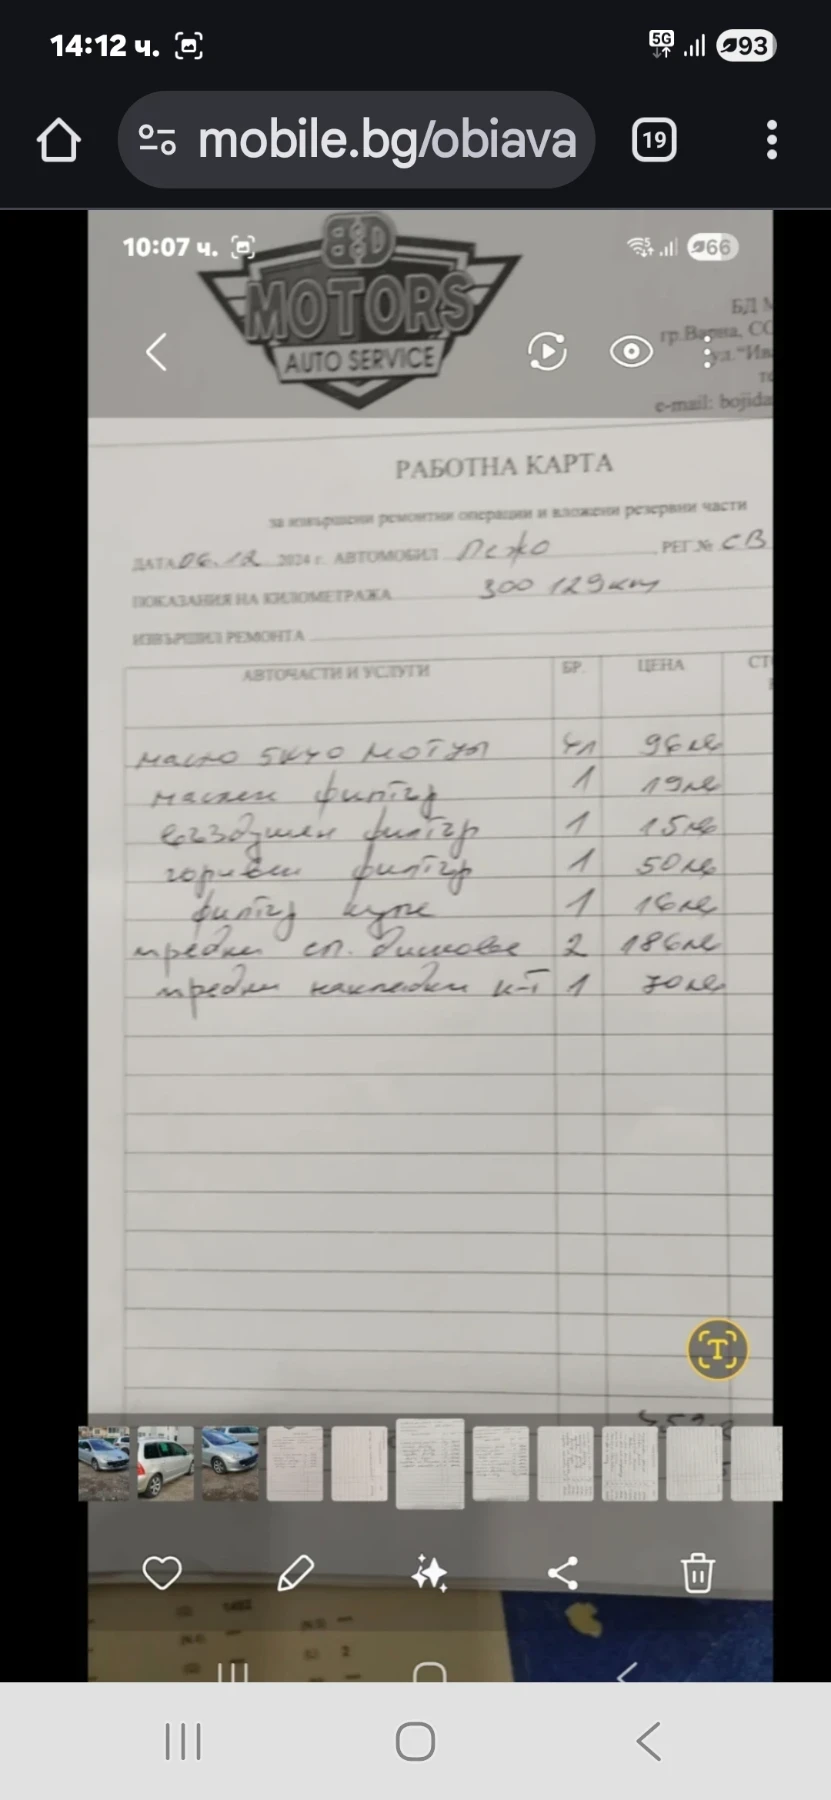 14:12 ч.
5G
93
mobile.bg/obiava
19
10:07 ч.
66
B:D
MOTORS
AUTO SERVICE
БД М
гр.Варна, СО
ул."Ив
те
e-mail: bojida
РАБОТНА КАРТА
за извършени ремонтни операции и вложени резервни части
ДАТА 06.12 2024 г. АВТОМОБИЛ Пежо РЕГ.№ СВ
ПОКАЗАНИЯ НА КИЛОМЕТРАЖА 300 129км
ИЗВЪРШИЛ РЕМОНТА
АВТОЧАСТИ И УСЛУГИ БР. ЦЕНА СТ
масло 5W40 мотул 4л 96лв
маслен филтър 1 19лв
въздушен филтър 1 15лв
горивен филтър 1 50лв
филтър купе 1 16лв
предни сп. дискове 2 186лв
предни накладки к-т 1 70лв
T